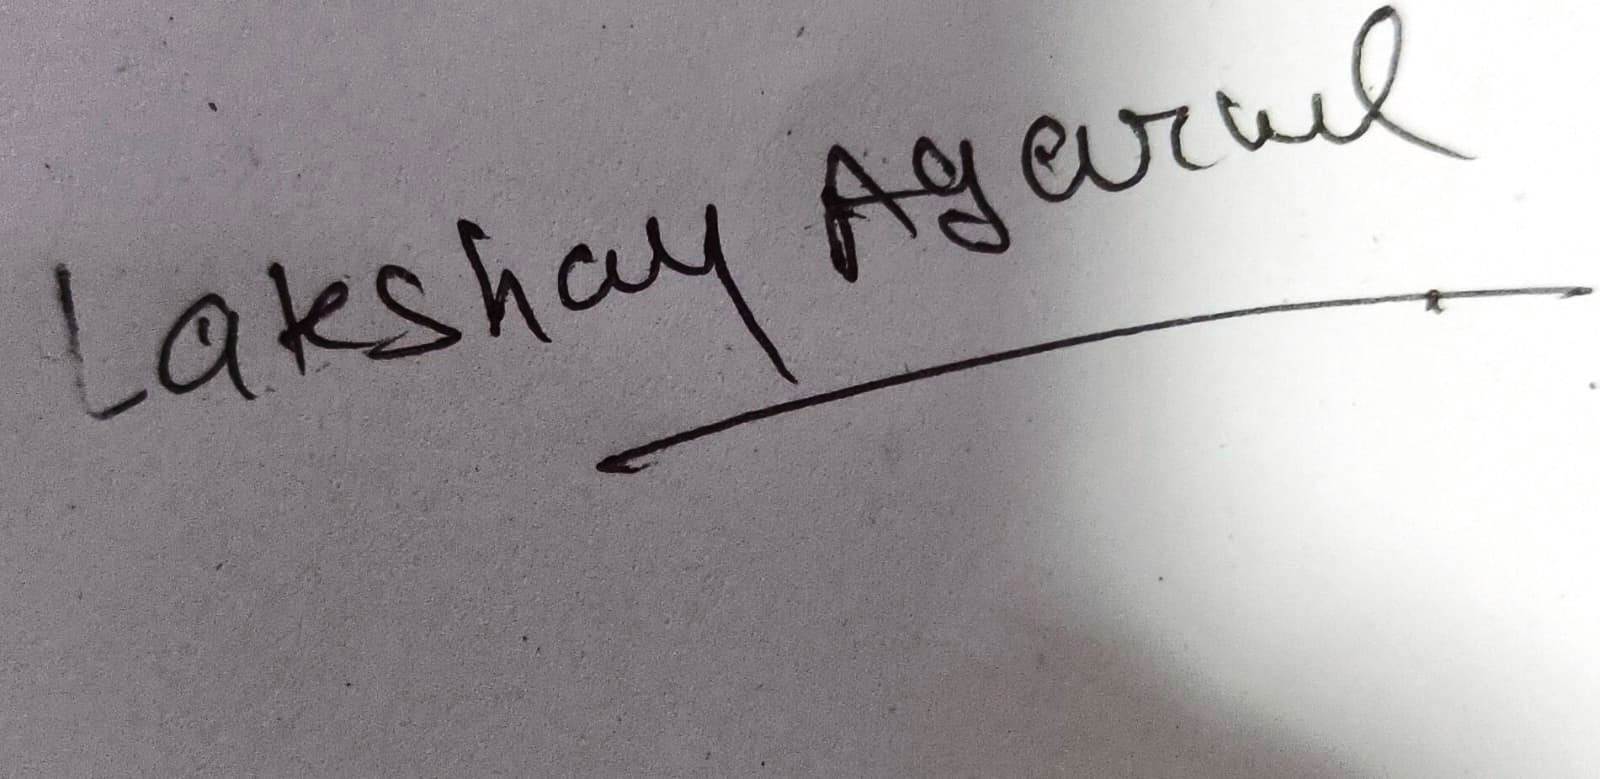 Lakshay Agarwal